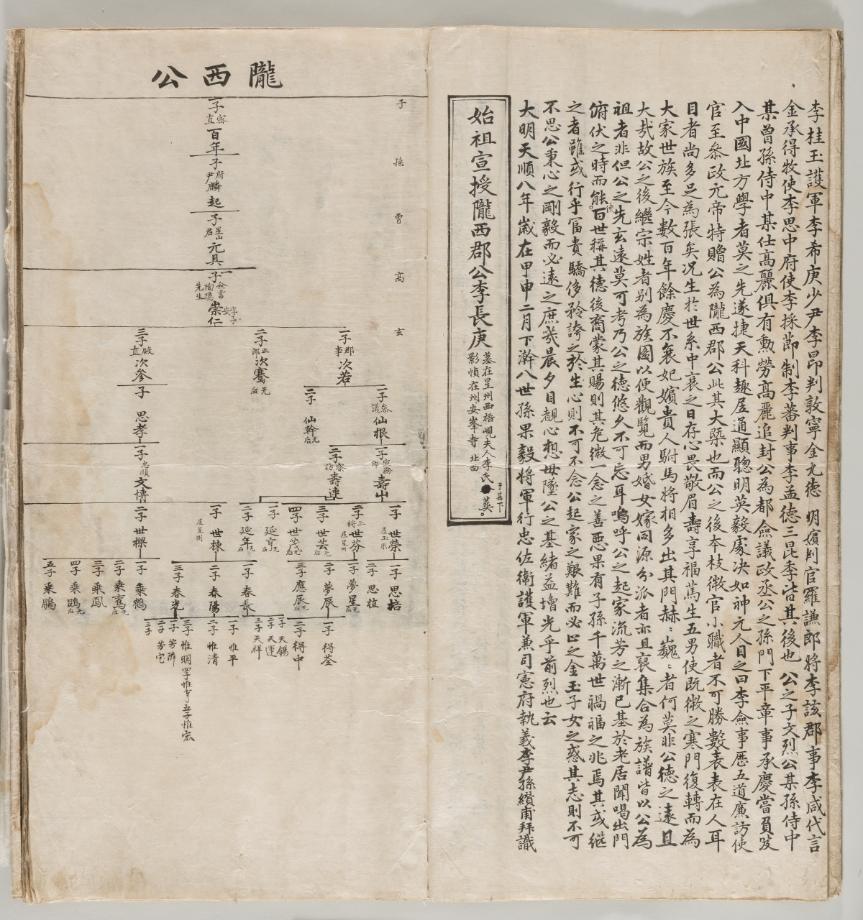 李桂玉護軍李希庚少尹李昂判敦寧金允德 明嬪判官羅謙郎將李該郡事李咸代言
金承得牧使李思中府使李採節制李蕃判事李孟德三昆李諧其後也 公之子文烈公某孫侍中
某曾孫侍中某仕高麗俱有勳勞高麗追封公為都僉議政丞公之孫門下平章事承慶當負笈
入中國北方學者莫之先遂捷天科趣屋通顯聰明英毅處决如神元人目之曰李僉事歷五道廉訪使
官至叅政元帝特贈公為隴西郡公此其大槩也而公之後本枝微官小職者不可勝數表表在人耳
目者尚多足為張矣况生於世系中衰之日存心畏敬眉壽享福篤生五男使既微之寒門復轉而為
大家世族至今數百年餘慶不衰妃嬪貴人駙馬將相多出其門赫:巍:者何莫非公德之遠且
大哉故公之後繼宗姓者别為族圖以便觀覽而男婚女嫁同源分派者亦且裒集合為族譜皆以公為
祖者非但公之先玄遠莫可考乃公之德悠久不可忘耳嗚呼公之起家流芳之漸已基於老居聞喝出門
俯伏之時而能百世稱其德後裔蒙其賜則其危微一念之善惡果有子孫千萬世禍福之兆焉其或繼
之者雖或行乎富貴驕侈矜誇之於生心則不可不念公起家之艱難而必以之金玉子女之惑其志則不可
不思公秉心之剛毅而必遠之庶幾晨夕目覩心想毋墜公之基緒益增光乎前烈也云
大明天順八年歲在甲申二月下澣八世孫果毅將軍行忠佐衛護軍兼司憲府執義李尹孫纘甫拜識
始祖宣授隴西郡公李長庚
墓在星州西梧峴夫人李氏●墓
影幀在州安峯寺
隴西公
子 孫 曾 高 玄
一子 百年
子 麟起
子 元具
子 崇仁
一子 次若
二子 次騫
三子 次參
一子 仙根
二子 仙幹
子 思孝
一子 壽山
二子 壽連
一子 文情
一子 世榮
二子 世芬
三子 世芸
四子 世茂
一子 延享
二子 延年
一子 世棟
二子 世櫟
一子 思格
二子 思植
一子 夢星
二子 夢辰
三子 應辰
一子 春長
二子 春陽
三子 春光
一子 乘鶴
二子 乘鸞
三子 乘鳳
四子 乘鵾
五子 乘鵬
一子 得荃
二子 得中
一子 天錫
二子 天運
三子 天祥
一子 惟平
二子 惟清